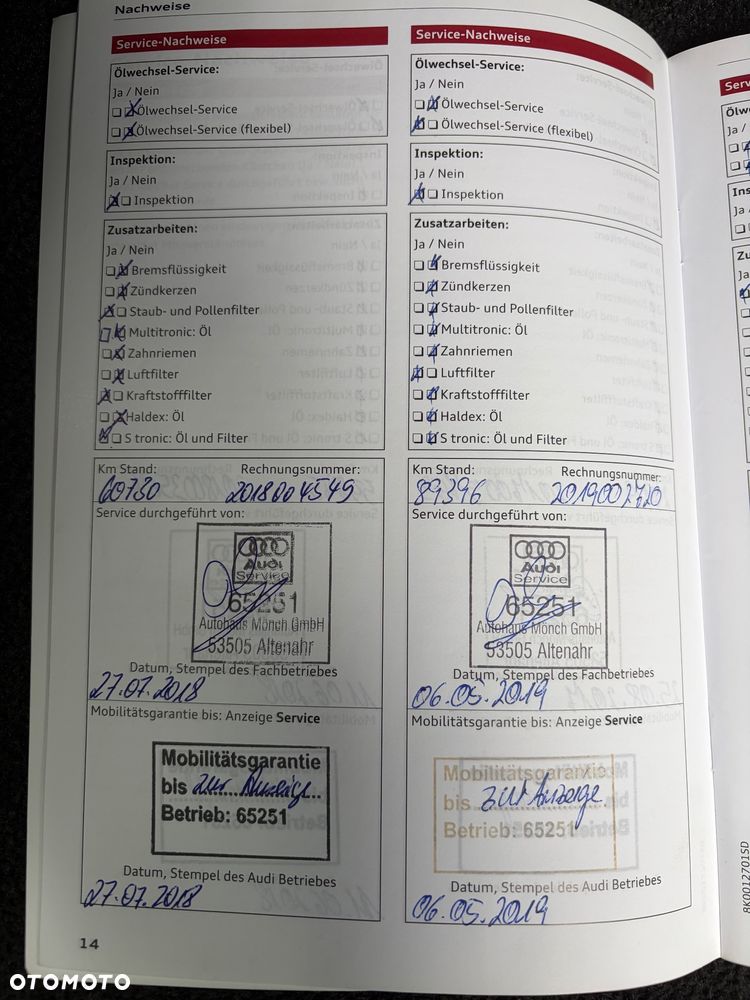 Nachweise
Service-Nachweise
Ölwechsel-Service:
Ja / Nein
Ölwechsel-Service
Ölwechsel-Service (flexibel)
Inspektion:
Ja / Nein
Inspektion
Zusatzarbeiten:
Ja / Nein
Bremsflüssigkeit
Zündkerzen
Staub- und Pollenfilter
Multitronic: Öl
Zahnriemen
Luftfilter
Kraftstofffilter
Haldex: Öl
S tronic: Öl und Filter
Km Stand: Rechnungsnummer:
60730 2018004549
Service durchgeführt von:
Audi
Service
65251
Autohaus Mönch GmbH
53505 Altenahr
Datum, Stempel des Fachbetriebes
27.07.2018
Mobilitätsgarantie bis: Anzeige Service
Mobilitätsgarantie
bis zur Anzeige
Betrieb: 65251
Datum, Stempel des Audi Betriebes
27.07.2018
14
Service-Nachweise
Ölwechsel-Service:
Ja / Nein
Ölwechsel-Service
Ölwechsel-Service (flexibel)
Inspektion:
Ja / Nein
Inspektion
Zusatzarbeiten:
Ja / Nein
Bremsflüssigkeit
Zündkerzen
Staub- und Pollenfilter
Multitronic: Öl
Zahnriemen
Luftfilter
Kraftstofffilter
Haldex: Öl
S tronic: Öl und Filter
Km Stand: Rechnungsnummer:
89396 2019002720
Service durchgeführt von:
Audi
Service
65251
Autohaus Mönch GmbH
53505 Altenahr
Datum, Stempel des Fachbetriebes
06.05.2019
Mobilitätsgarantie bis: Anzeige Service
Mobilitätsgarantie
bis zur Anzeige
Betrieb: 65251
Datum, Stempel des Audi Betriebes
06.05.2019
8K0012701SD
OTOMOTO